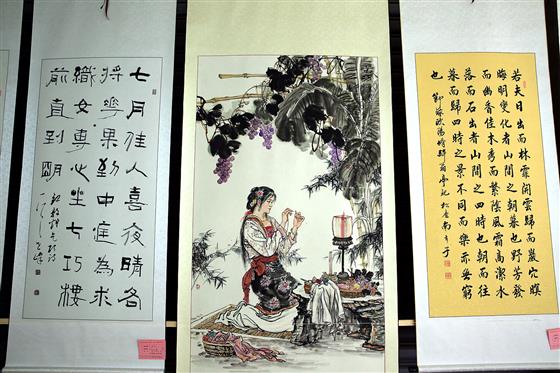 七月佳人喜夜晴各
將華果勤中庭為求
織女專心坐七巧樓
前直到明
若夫日出而林霏開雲歸而巖穴暝
晦明變化者山間之朝暮也野芳發
而幽香佳木秀而繁陰風霜高潔水
落而石出者山間之四時也朝而往
暮而歸四時之景不同而樂亦無窮
也
歐陽修醉翁亭記